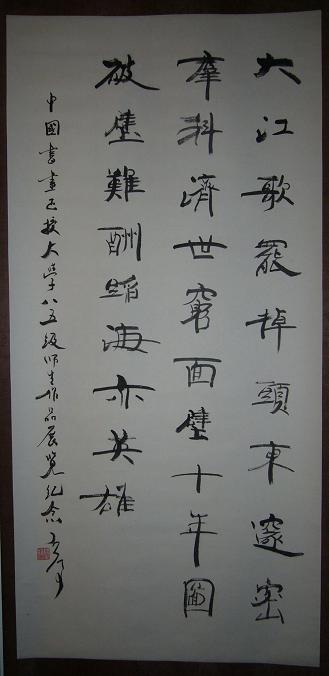 大江歌罷掉頭東邃密
羣科濟世窮面壁十年圖
破壁難酬蹈海亦英雄
中國書畫函授大學八五級师生作品展覽紀念